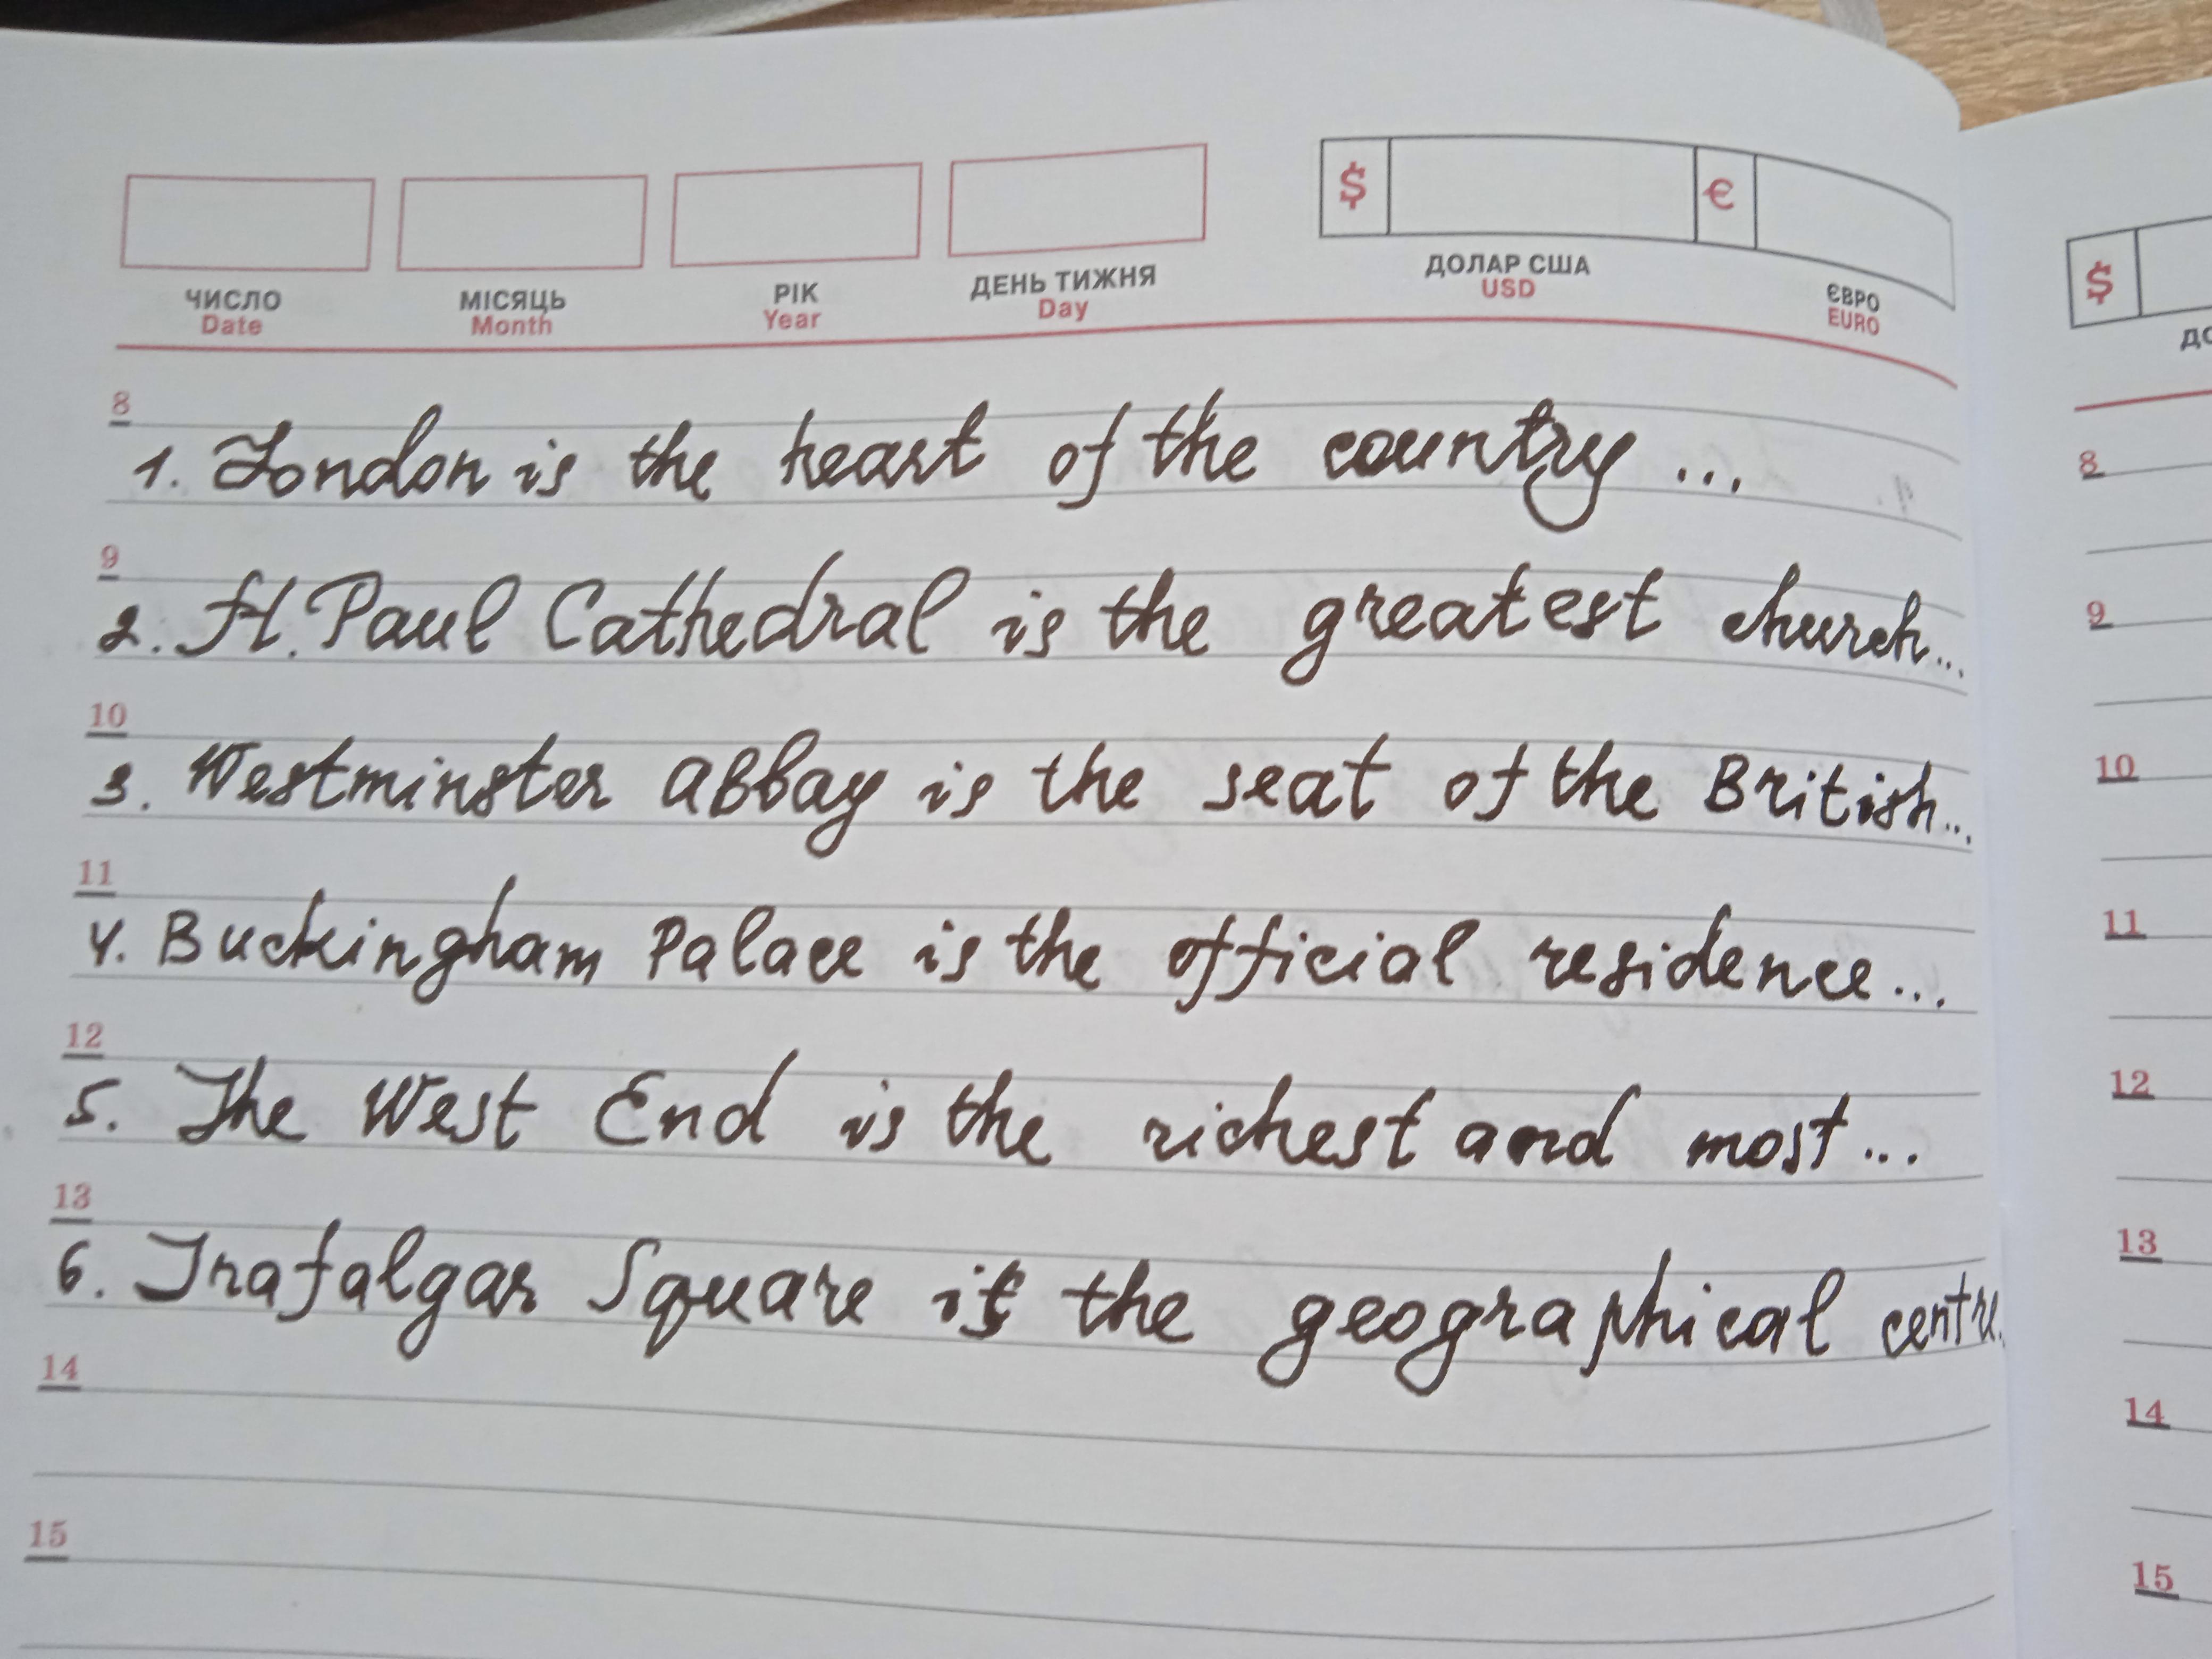 $ €
ЧИСЛО МІСЯЦЬ РІК ДЕНЬ ТИЖНЯ ДОЛАР США ЄВРО
Date Month Year Day USD EURO
8
1. London is the heart of the country ...
9
2. St. Paul Cathedral is the greatest church...
10
3. Westminster abbay is the seat of the British...
11
4. Buckingham Palace is the official residence...
12
5. The West End is the richest and most...
13
6. Trafalgar Square is the geographical centre.
14
15
$
8
9
10
11
12
13
14
15